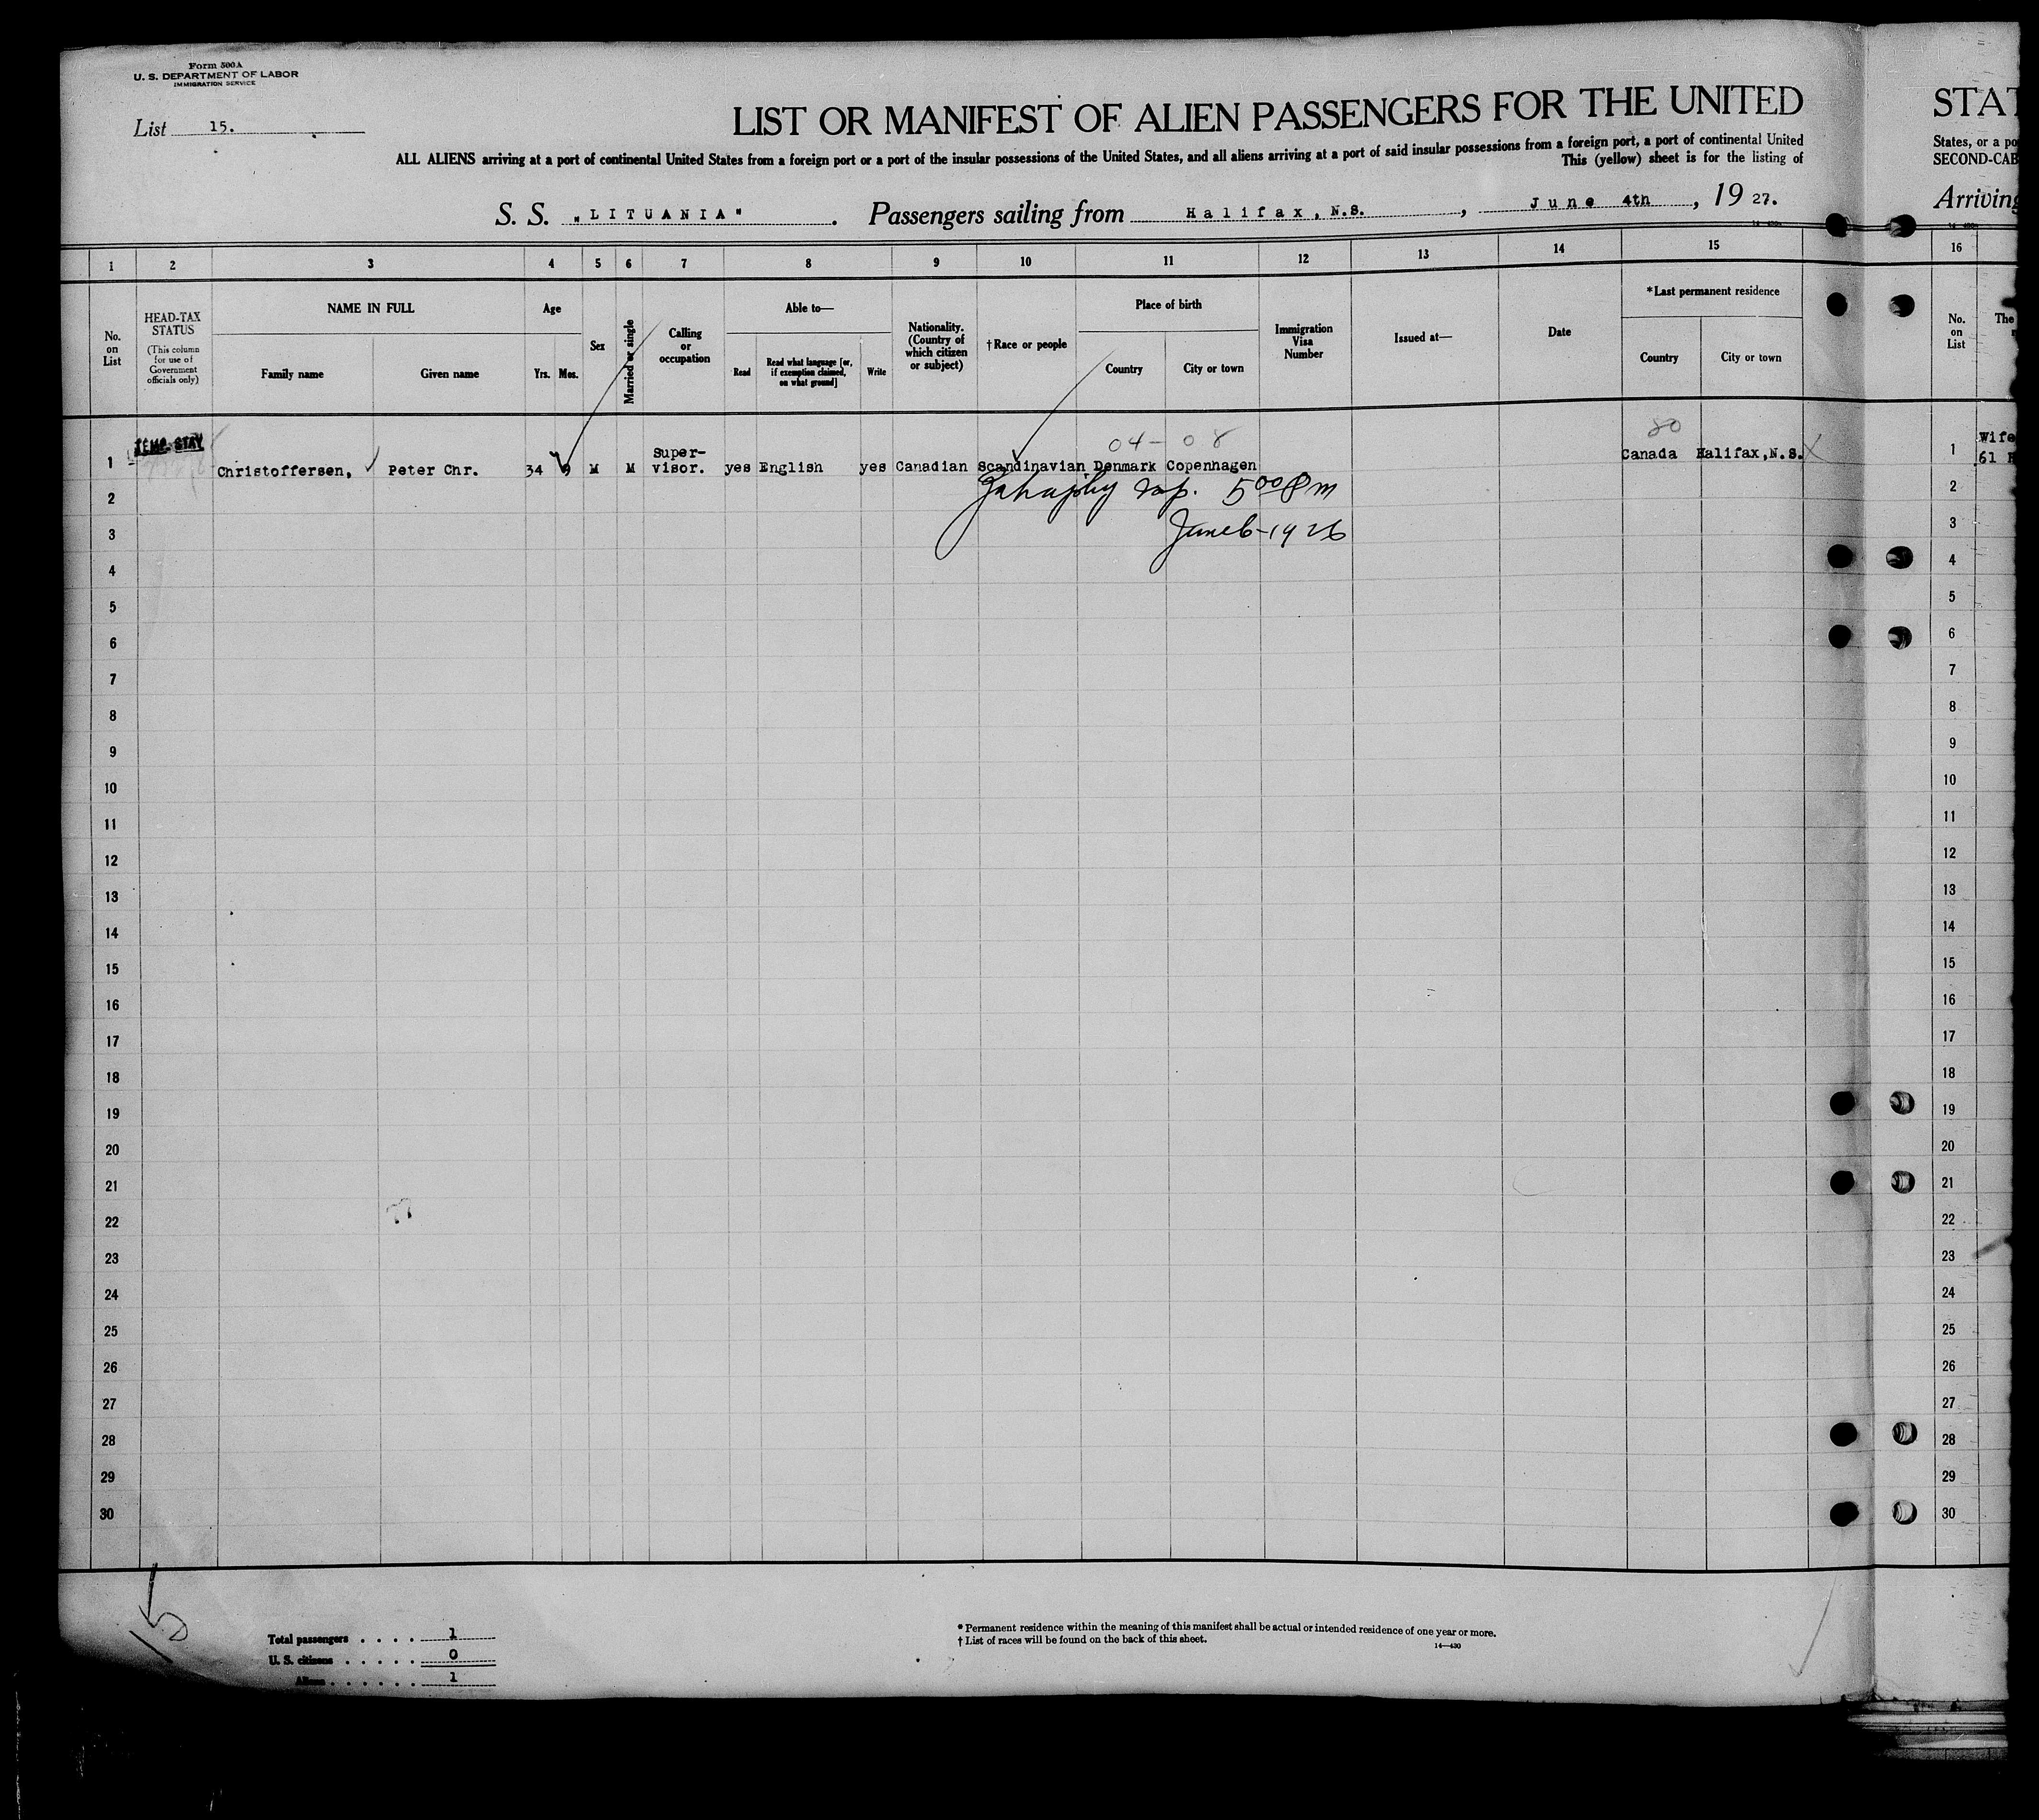 Form 500A
U. S. DEPARTMENT OF LABOR
IMMIGRATION SERVICE
List 15.
LIST OR MANIFEST OF ALIEN PASSENGERS FOR THE UNITED
STAT
ALL ALIENS arriving at a port of continental United States from a foreign port or a port of the insular possessions of the United States, and all aliens arriving at a port of said insular possessions from a foreign port, a port of continental United
States, or a po
This (yellow) sheet is for the listing of
SECOND-CAB
S. S. "LITUANIA". Passengers sailing from Halifax, N.S., June 4th, 1927.
Arriving
1 2 3 4 5 6 7 8 9 10 11 12 13 14 15 16
No. on List
HEAD-TAX STATUS
(This column for use of Government officials only)
NAME IN FULL
Family name Given name
Age
Yrs. Mos.
Sex
Married or single
Calling or occupation
Able to—
Read
Read what language [or, if exemption claimed, on what ground]
Write
Nationality. (Country of which citizen or subject)
†Race or people
Place of birth
Country City or town
Immigration Visa Number
Issued at—
Date
*Last permanent residence
Country City or town
No. on List
The
TEMP. STAY
04- 08
80
1 Christoffersen, Peter Chr. 34 9 M M Super-visor. yes English yes Canadian Scandinavian Denmark Copenhagen Canada Halifax,N.S. 1 Wife
61
2 5 00 Pm 2
3 June 6-1926 3
4 4
5 5
6 6
7 7
8 8
9 9
10 10
11 11
12 12
13 13
14 14
15 15
16 16
17 17
18 18
19 19
20 20
21 21
22 22
23 23
24 24
25 25
26 26
27 27
28 28
29 29
30 30
15
Total passengers . . . . 1
U. S. citizens . . . . . 0
Aliens . . . . . . 1
* Permanent residence within the meaning of this manifest shall be actual or intended residence of one year or more.
† List of races will be found on the back of this sheet.
14—430